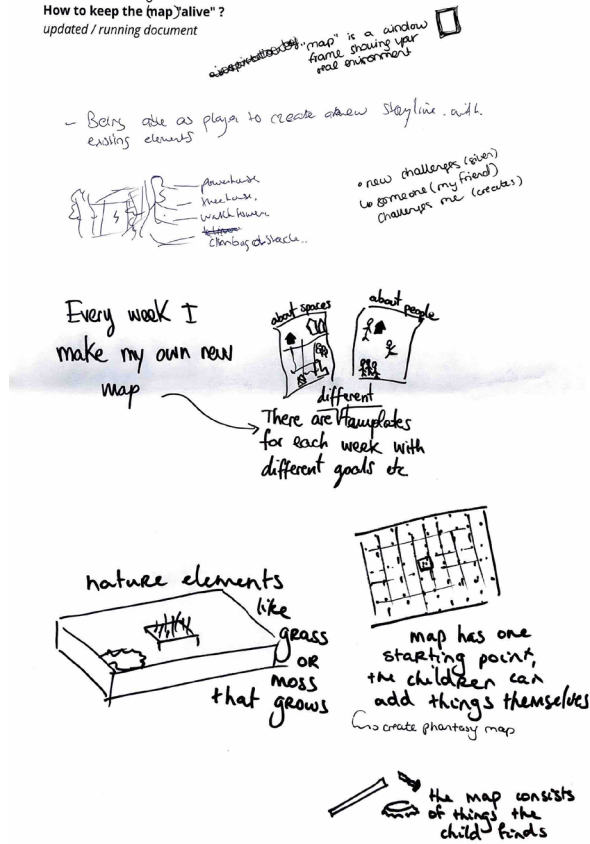 How to keep the (map) "alive" ?
updated / running document
"map" is a window
frame showing your
real enviroment
- Being able as player to create a new storyline with
existing elements
powerhouse
treehouse,
watchtower
climbing obstacle..
• new challenges (given)
↳ someone (my friend)
challenges me (creates)
Every week I
make my own new
map
about spaces
about people
different
There are templates
for each week with
different goals etc
nature elements
like
grass
OR
moss
that grows
map has one
starting point,
the children can
add things themselves
↳ create phantasy map
the map consists
of things the
child finds